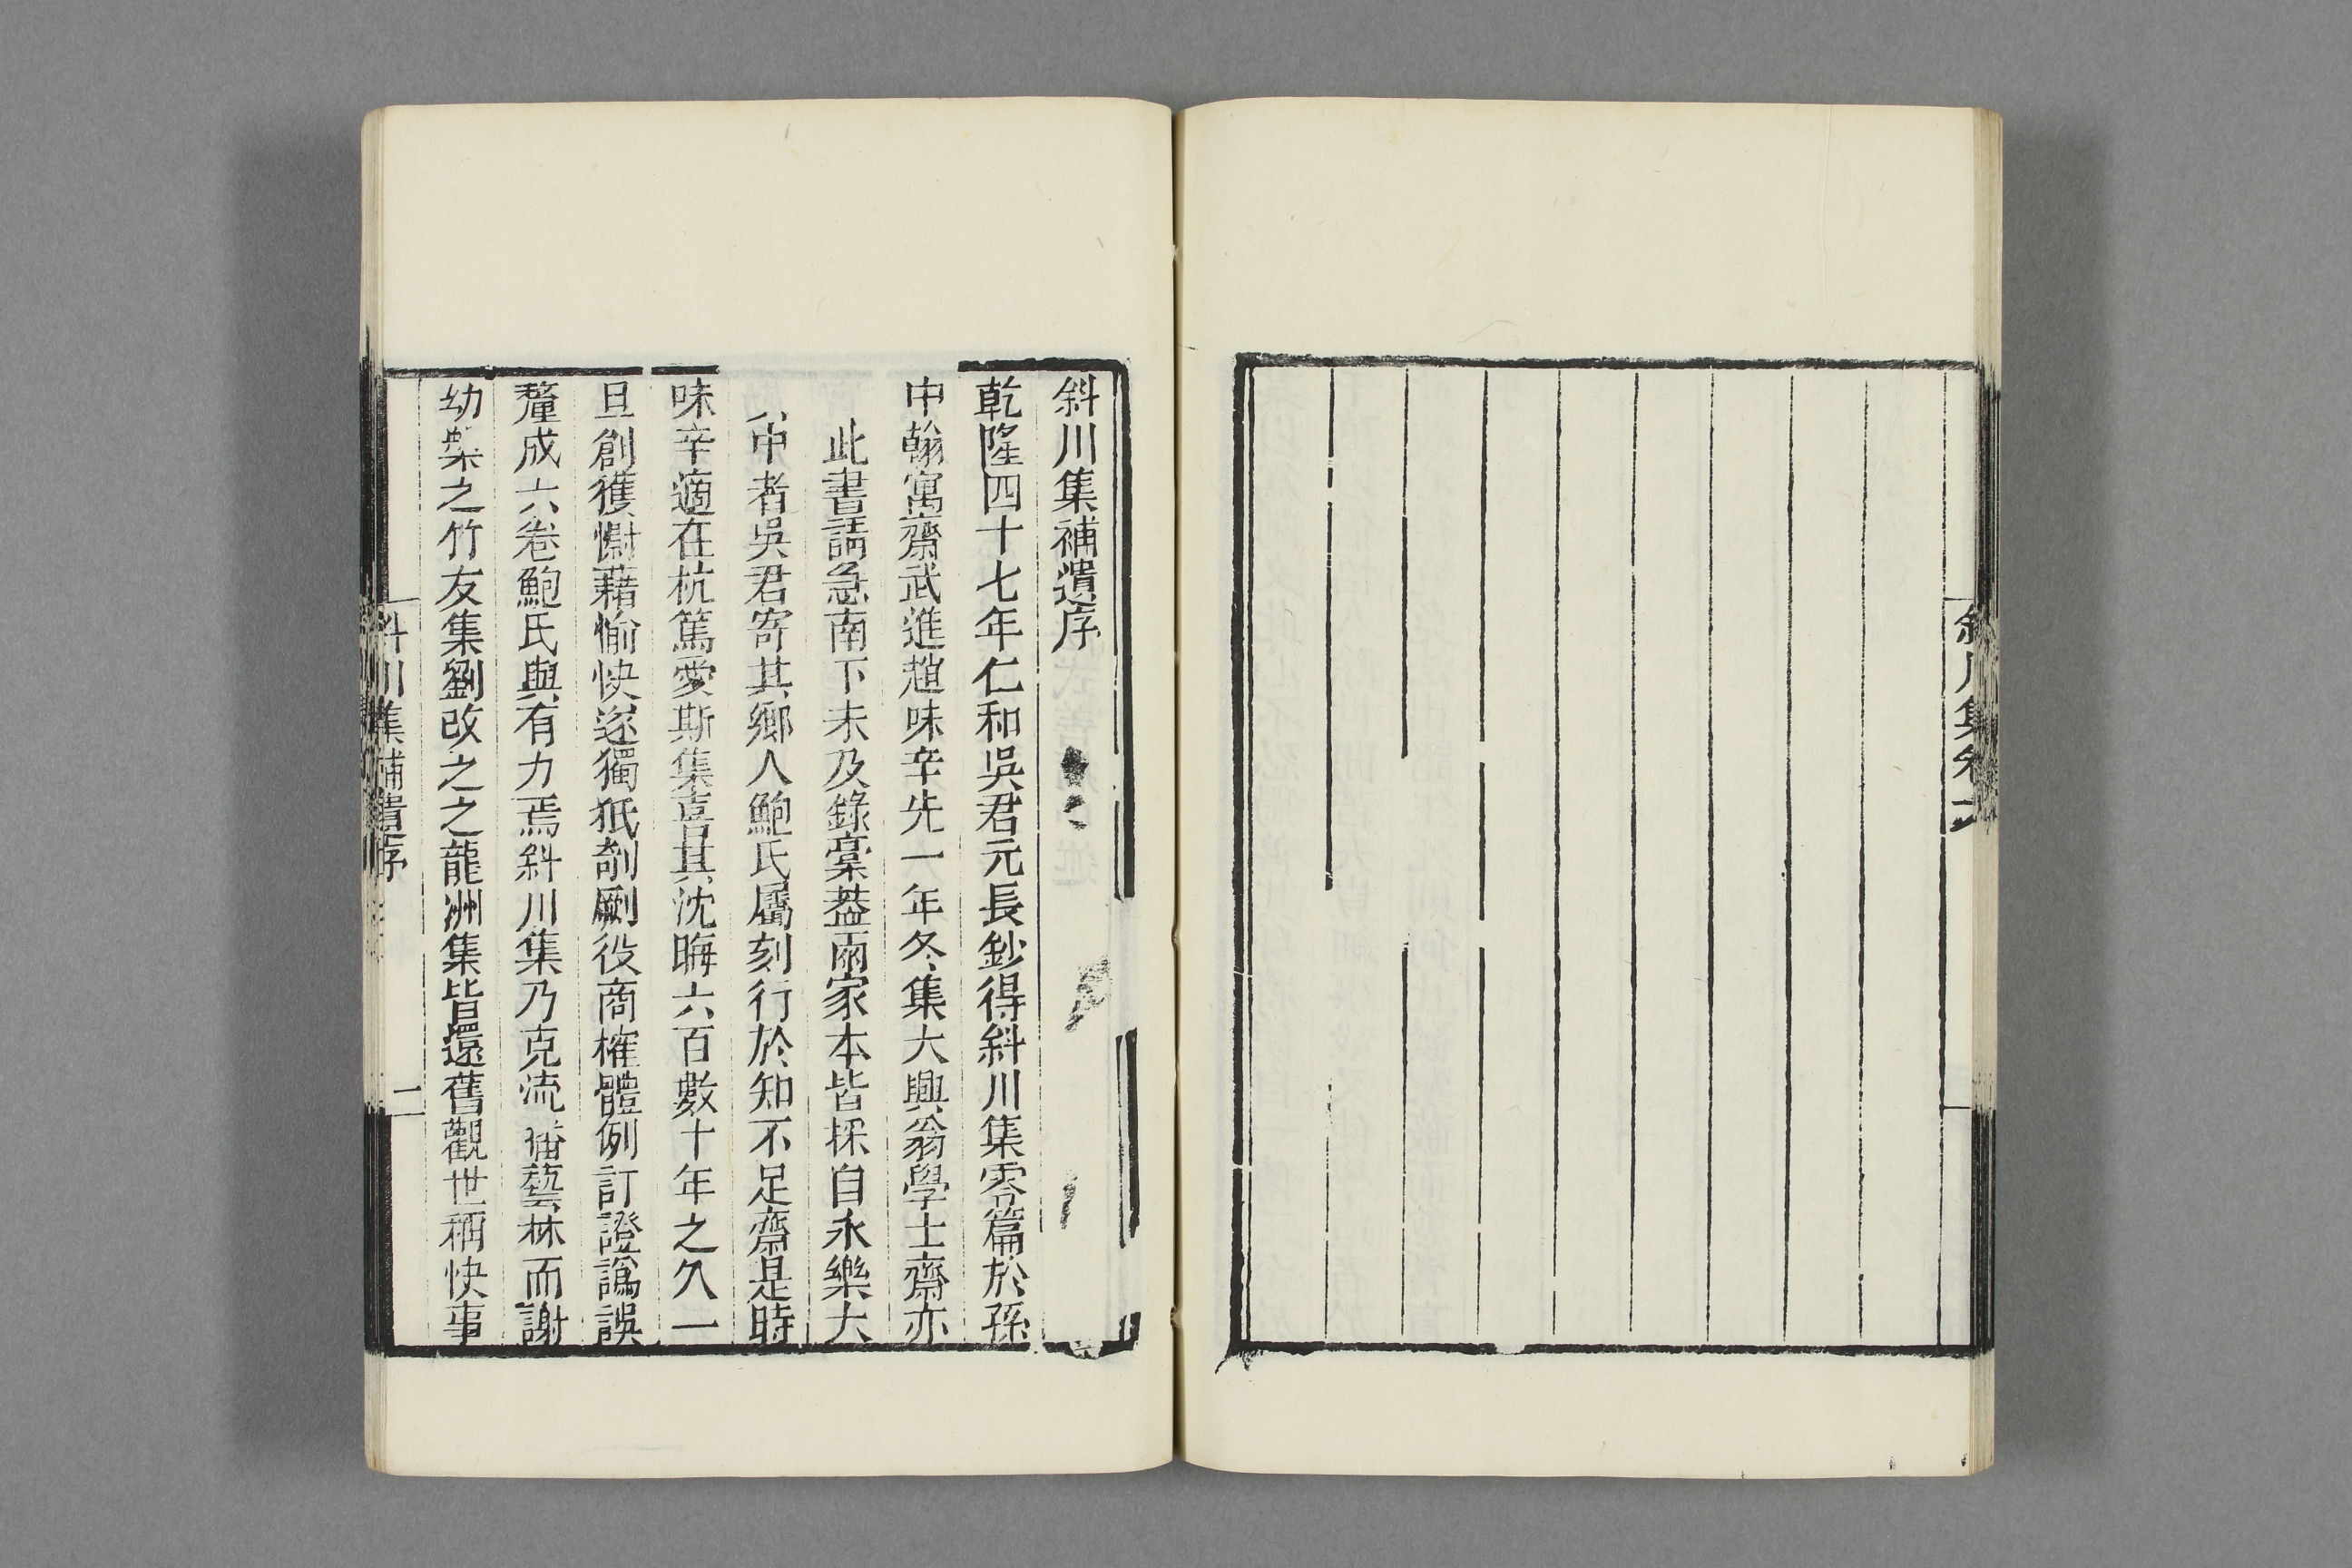 斜川集卷六
斜川集補遺序
乾隆四十七年仁和吳君元長鈔得斜川集零篇於孫
中翰寓齋武進趙味辛先一年冬集大興翁學士齋亦
此書請急南下未及錄稾葢兩家本皆採自永樂大
中者吳君寄其鄉人鮑氏屬刻行於知不足齋是時
味辛適在杭篤愛斯集喜其沈晦六百數十年之久一
旦創獲慰藉愉快遂獨抵剞劂役商榷體例訂證譌誤
釐成六卷鮑氏與有力焉斜川集乃克流播藝林而謝
幼槃之竹友集劉改之之龍洲集皆還舊觀世稱快事
斜川集補遺序
二